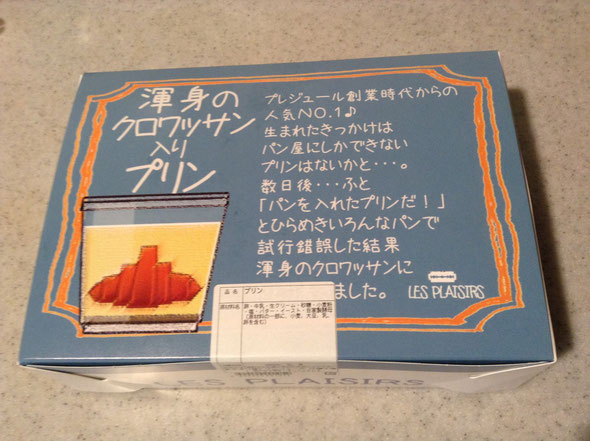 渾身の
クロワッサン
入り
プリン
プレジュール創業時代からの
人気NO.1♪
生まれたきっかけは
パン屋にしかできない
プリンはないかと・・・。
数日後・・・ふと
「パンを入れたプリンだ！」
とひらめきいろんなパンで
試行錯誤した結果
渾身のクロワッサンに
ました。
LES PLAISIRS
品名 プリン
原材料名 卵・牛乳・生クリーム・砂糖・小麦粉
・塩・バター・イースト・自家製酵母
（原材料の一部に、小麦、大豆、乳、
卵を含む）
LES PLAISIRS